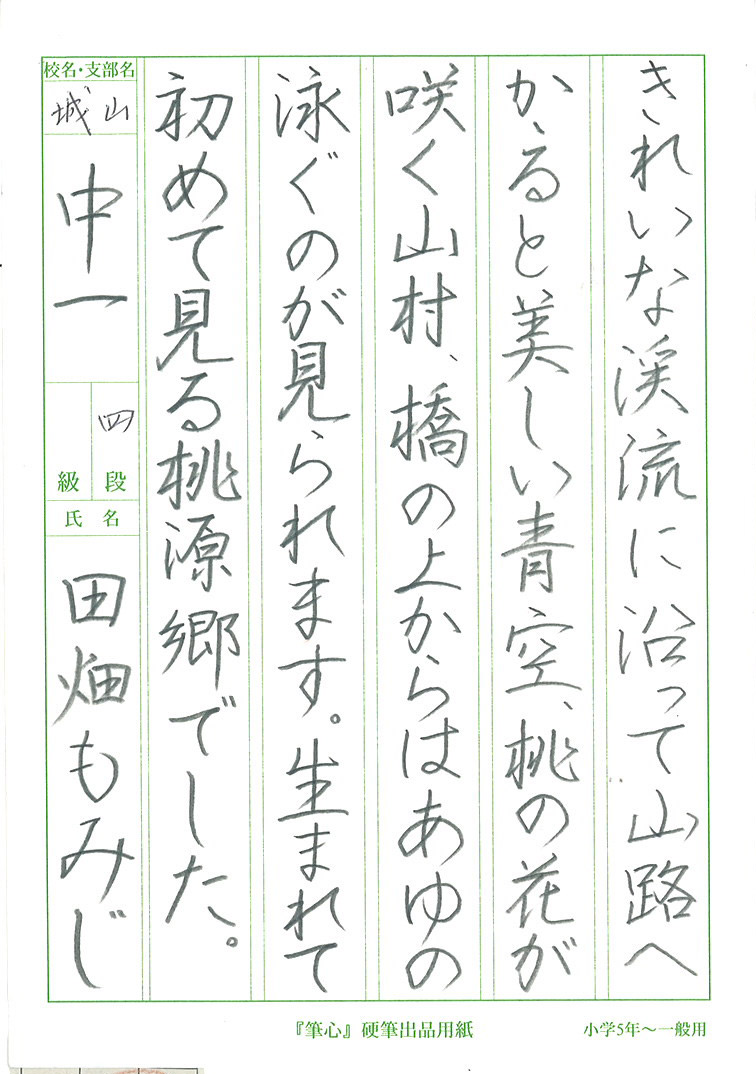 きれいな渓流に沿って山路へ
かゝると美しい青空、桃の花が
咲く山村、橋の上からはあゆの
泳ぐのが見られます。生まれて
初めて見る桃源郷でした。
校名・支部名
城山
中一
四
段
級
氏名
田畑もみじ
『筆心』硬筆出品用紙
小学5年～一般用